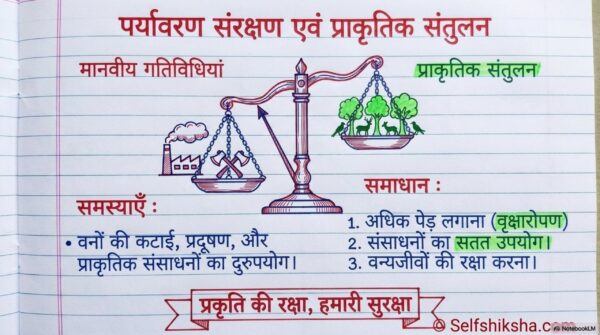 पर्यावरण संरक्षण एवं प्राकृतिक संतुलन
मानवीय गतिविधियां
प्राकृतिक संतुलन
समस्याएँ :
• वनों की कटाई, प्रदूषण, और
प्राकृतिक संसाधनों का दुरुपयोग।
समाधान :
1. अधिक पेड़ लगाना (वृक्षारोपण)
2. संसाधनों का सतत उपयोग।
3. वन्यजीवों की रक्षा करना।
प्रकृति की रक्षा, हमारी सुरक्षा
© Selfshiksha.com
NotebookLM